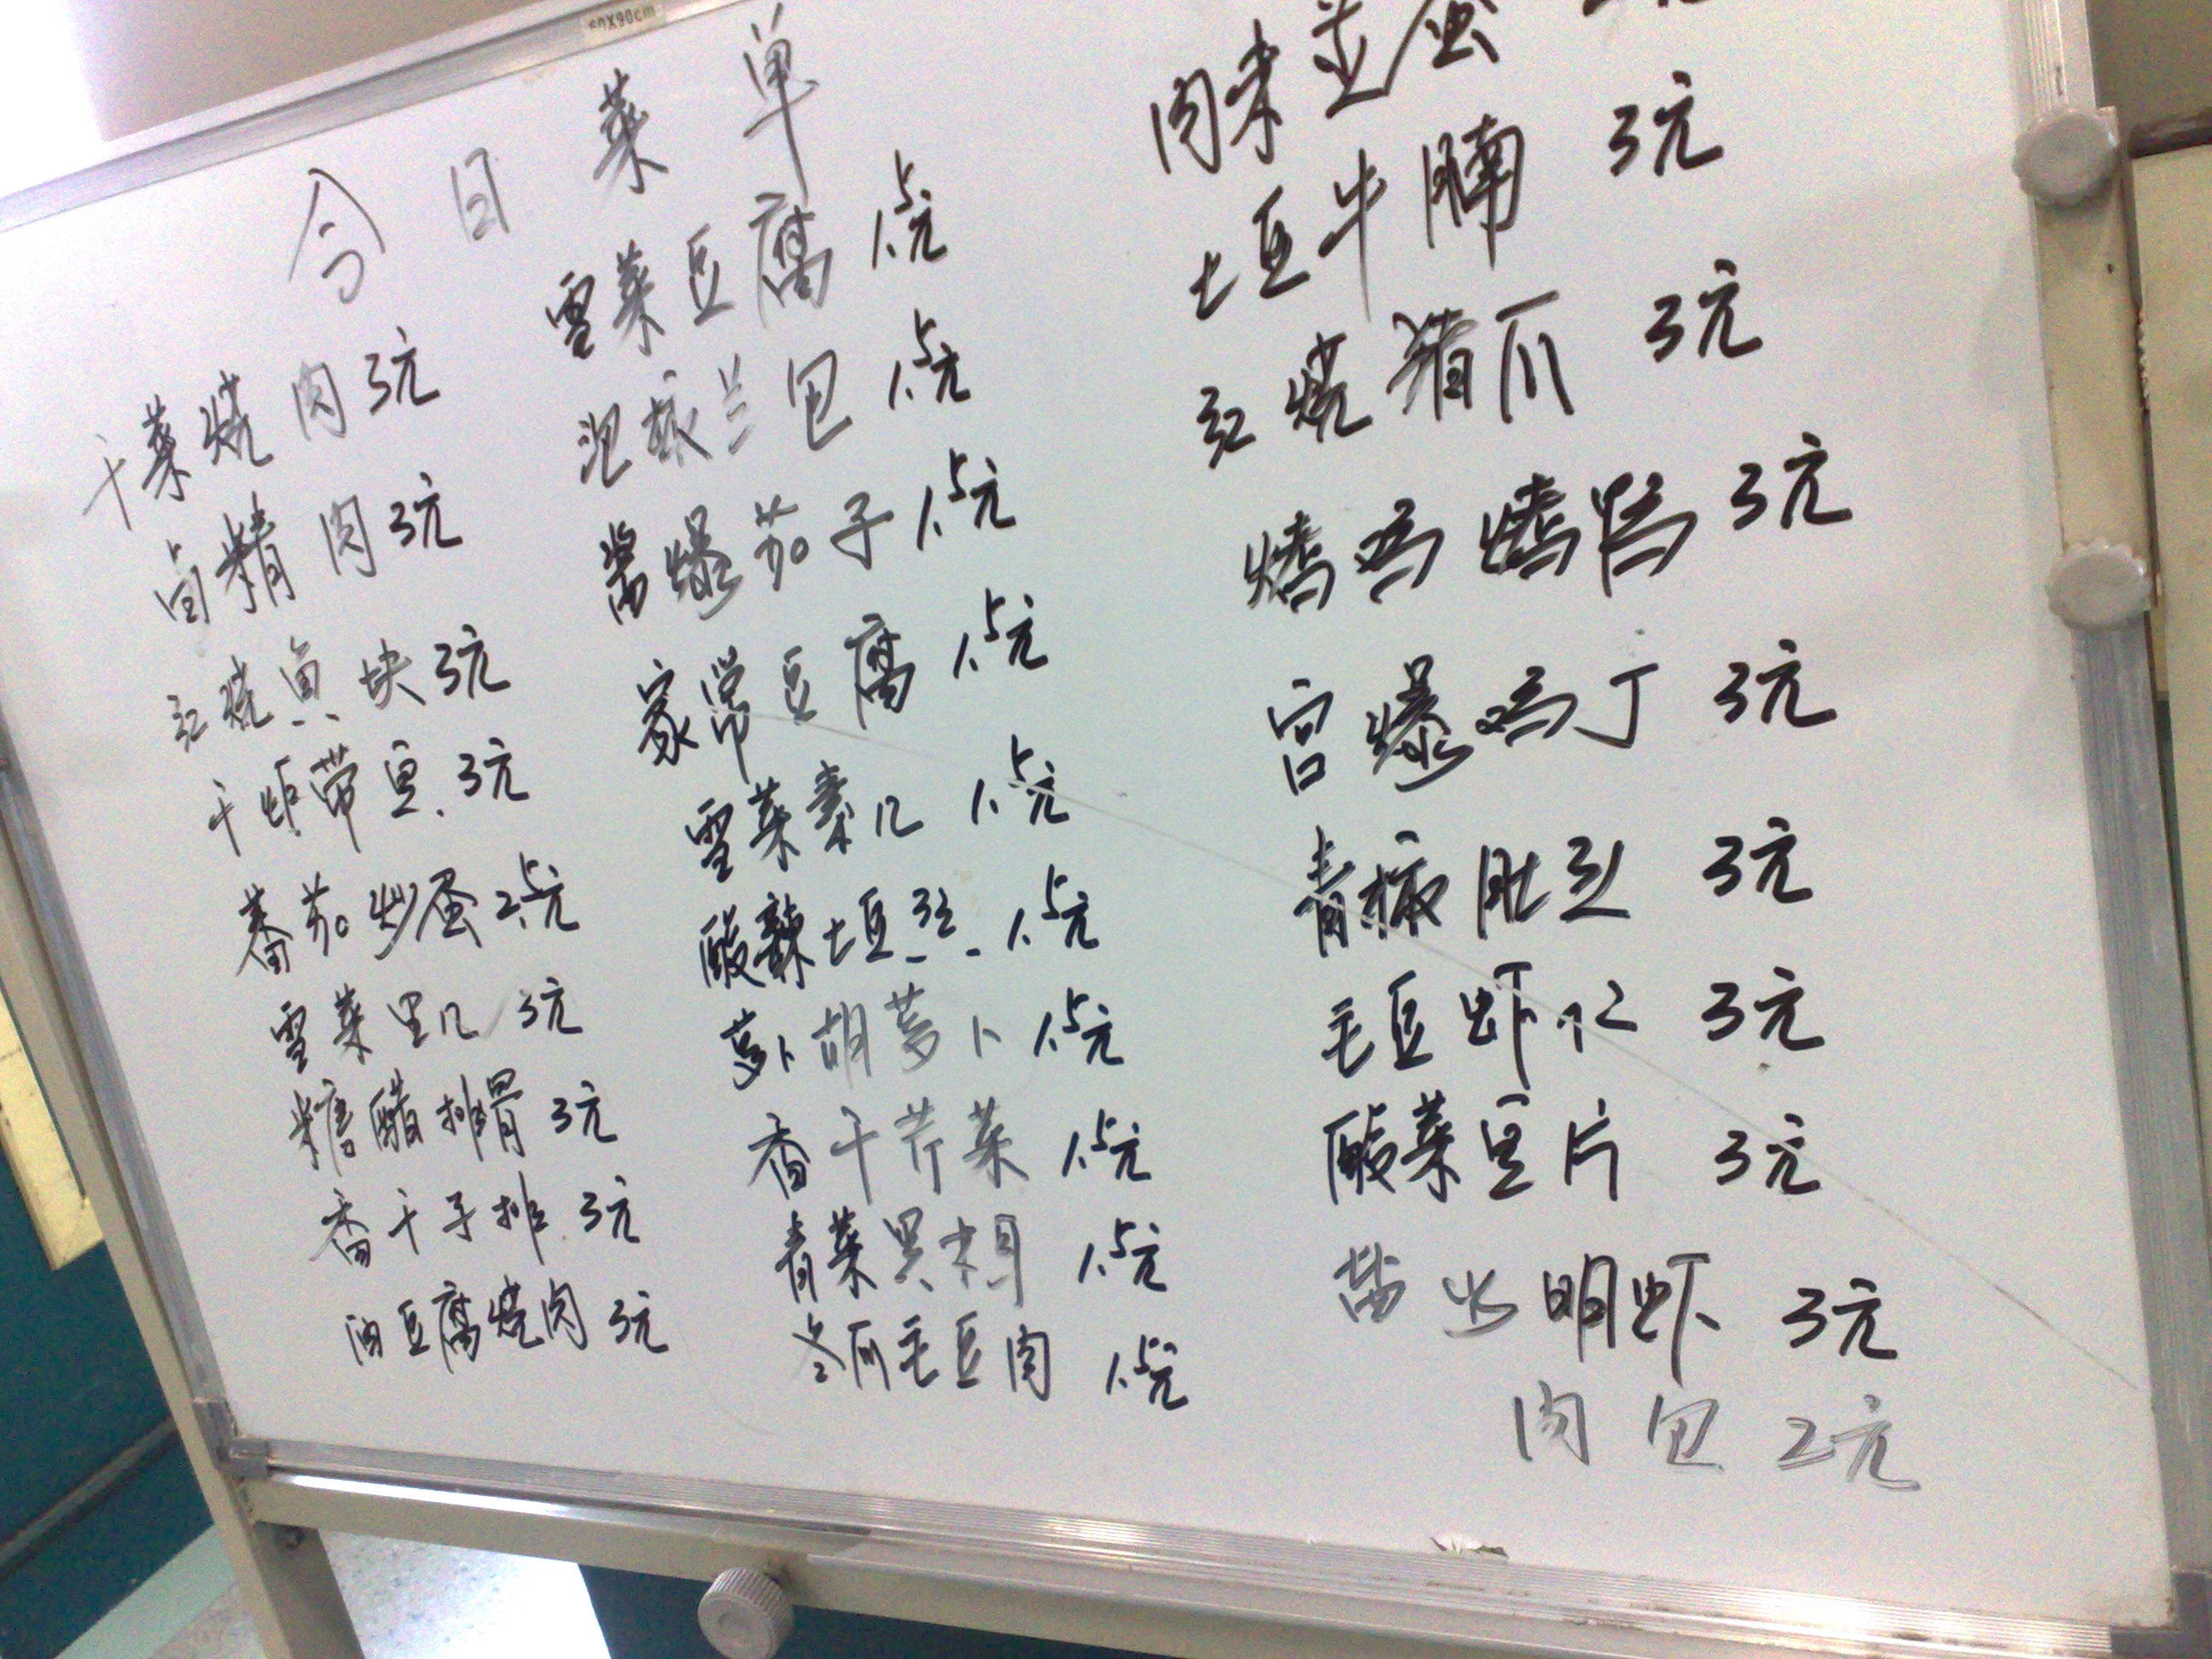 60X90cm
今日菜单
干菜烧肉 3元
卤精肉 3元
红烧鱼块 3元
干炸带鱼 3元
蕃茄炒蛋 2.5元
雪菜里几 3元
糖醋排骨 3元
香干子排 3元
油豆腐烧肉 3元
雪菜豆腐 1.5元
泡椒兰包 1.5元
酱爆茄子 1.5元
家常豆腐 1.5元
雪菜素几 1.5元
酸辣土豆丝 1.5元
萝卜胡萝卜 1.5元
香干芹菜 1.5元
青菜黑木耳 1.5元
冬瓜毛豆肉 1.5元
肉末蒸蛋
土豆牛腩 3元
红烧猪爪 3元
烤鸡烤鸭 3元
宫爆鸡丁 3元
青椒肚丝 3元
毛豆虾仁 3元
酸菜鱼片 3元
盐水明虾 3元
肉包 2元